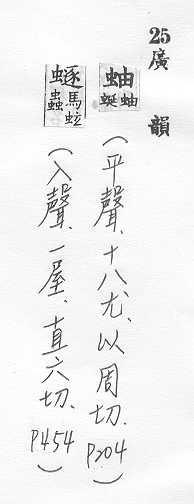 25廣韻
蚰 蜒蚰
(平聲、十八尤、以周切. P204)
蝬 馬蚿蟲
(入聲、一屋、直六切. P454)